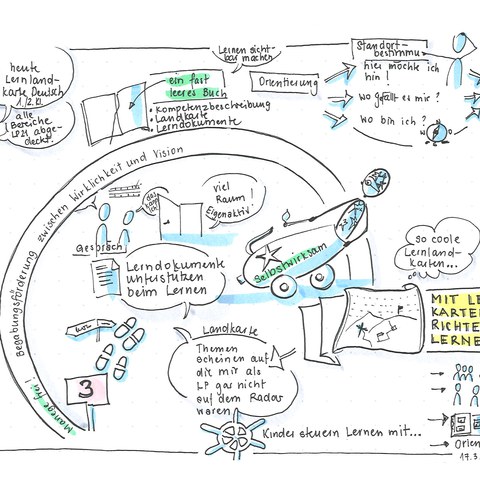 heute
Lernland-
karte Deutsch
1./2.Kl.
alle
Bereiche
LP21 abge-
deckt.
ein fast
leeres Buch
• Kompetenzbeschreibung
• Landkarte
• Lerndokumente
Lernen sicht-
bar machen
Orientierung
Standort-
bestimmung
hier möchte ich
hin!
wo gefällt es mir?
wo bin ich?
Begabungsförderung zwischen Wirklichkeit und Vision
Manege frei!
viel
Raum!
Eigenaktiv!
Gespräch
Lerndokumente
unterstützen
beim Lernen
selbstwirksam
so coole
Lernland-
karten...
MIT LE
KARTE
RICHTE
LERNE
Landkarte
Themen
scheinen auf
die mir als
LP gar nicht
auf dem Radar
waren!
3
Kinder steuern Lernen mit...
Orien
17.3.